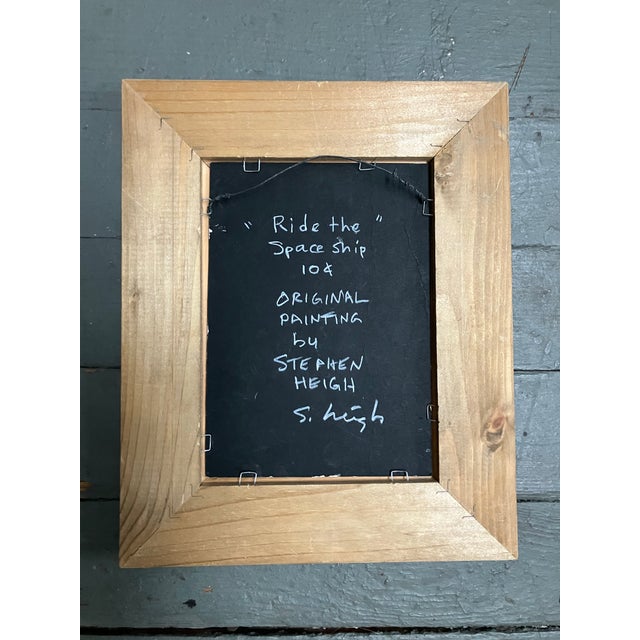 "Ride the"
Space Ship
10¢
ORIGINAL
PAINTING
by
STEPHEN
HEIGH
S. Heigh